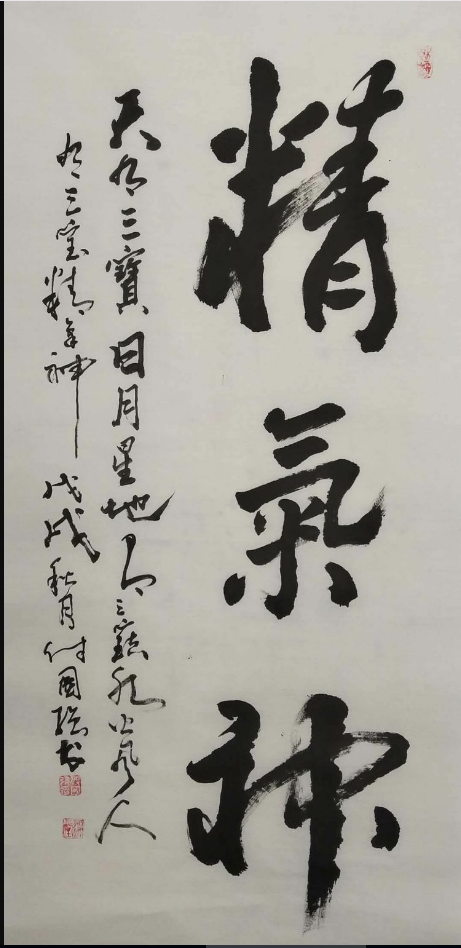 精氣神
天有三寶日月星地有三寶水火風人
有三宝精氣神戊戌秋月付國强书